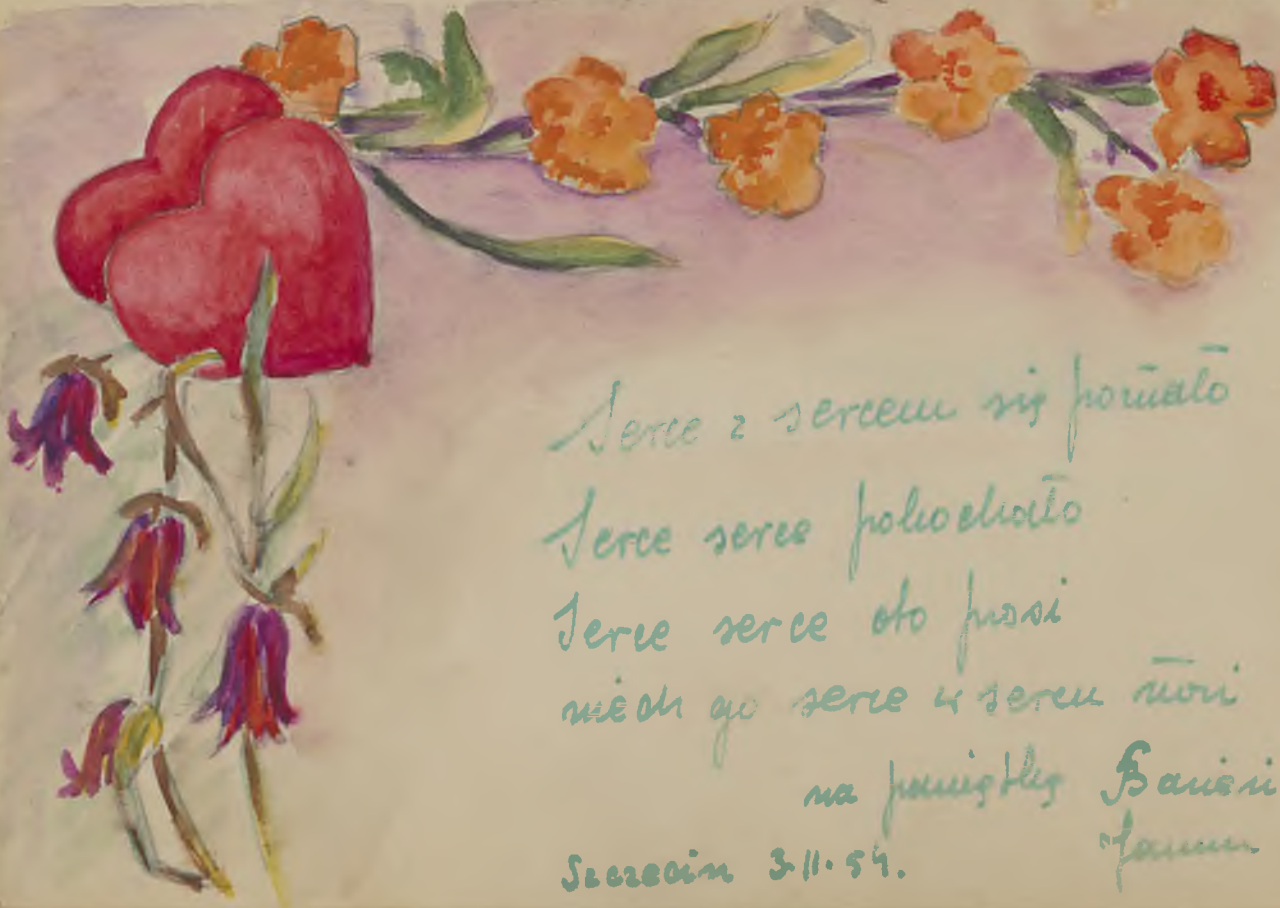 Serce z sercem się poznało
Serce serce pokochało
Serce serce oto prosi
niech go serce w sercu nosi
na pamiątkę
Szczecin 3.II.54.